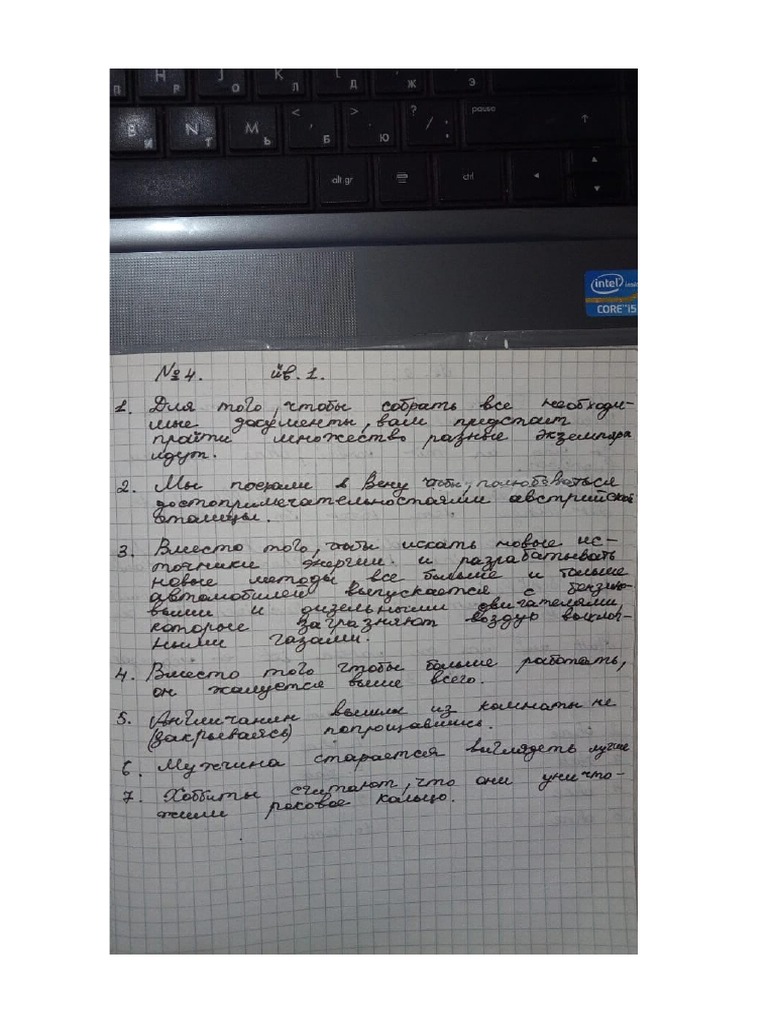 П Н Р J О K Л L Д : Ж " Э
B И N Т M Ь < , Б > . Ю ? / pause ↑
alt gr ctrl ◄ ▲ ▼
intel inside
CORE i5
№4. Ив.1.
1. Для того, чтобы собрать все необходи-
мые документы, вам предстоит
пройти множество разные экземпляра
идут.
2. Мы поехали в Вену чтобы, полюбоваться
достопримечательностями австрийской
столицы.
3. Вместо того, чтобы искать новые ис-
точники энергии и разрабатывать
новые методы, все больше и больше
автомобилей выпускается с бензино-
выми и дизельными двигателями,
которые загрязняют воздух выхлоп-
ными газами.
4. Вместо того чтобы больше работать,
он жалуется выше всего.
5. Англичанин вышли из комнаты не
(закрываясь) попрощавшись.
6. Мужчина старается выглядеть лучше
7. Хоббиты считают, что они уничто-
жили роковое кольцо.